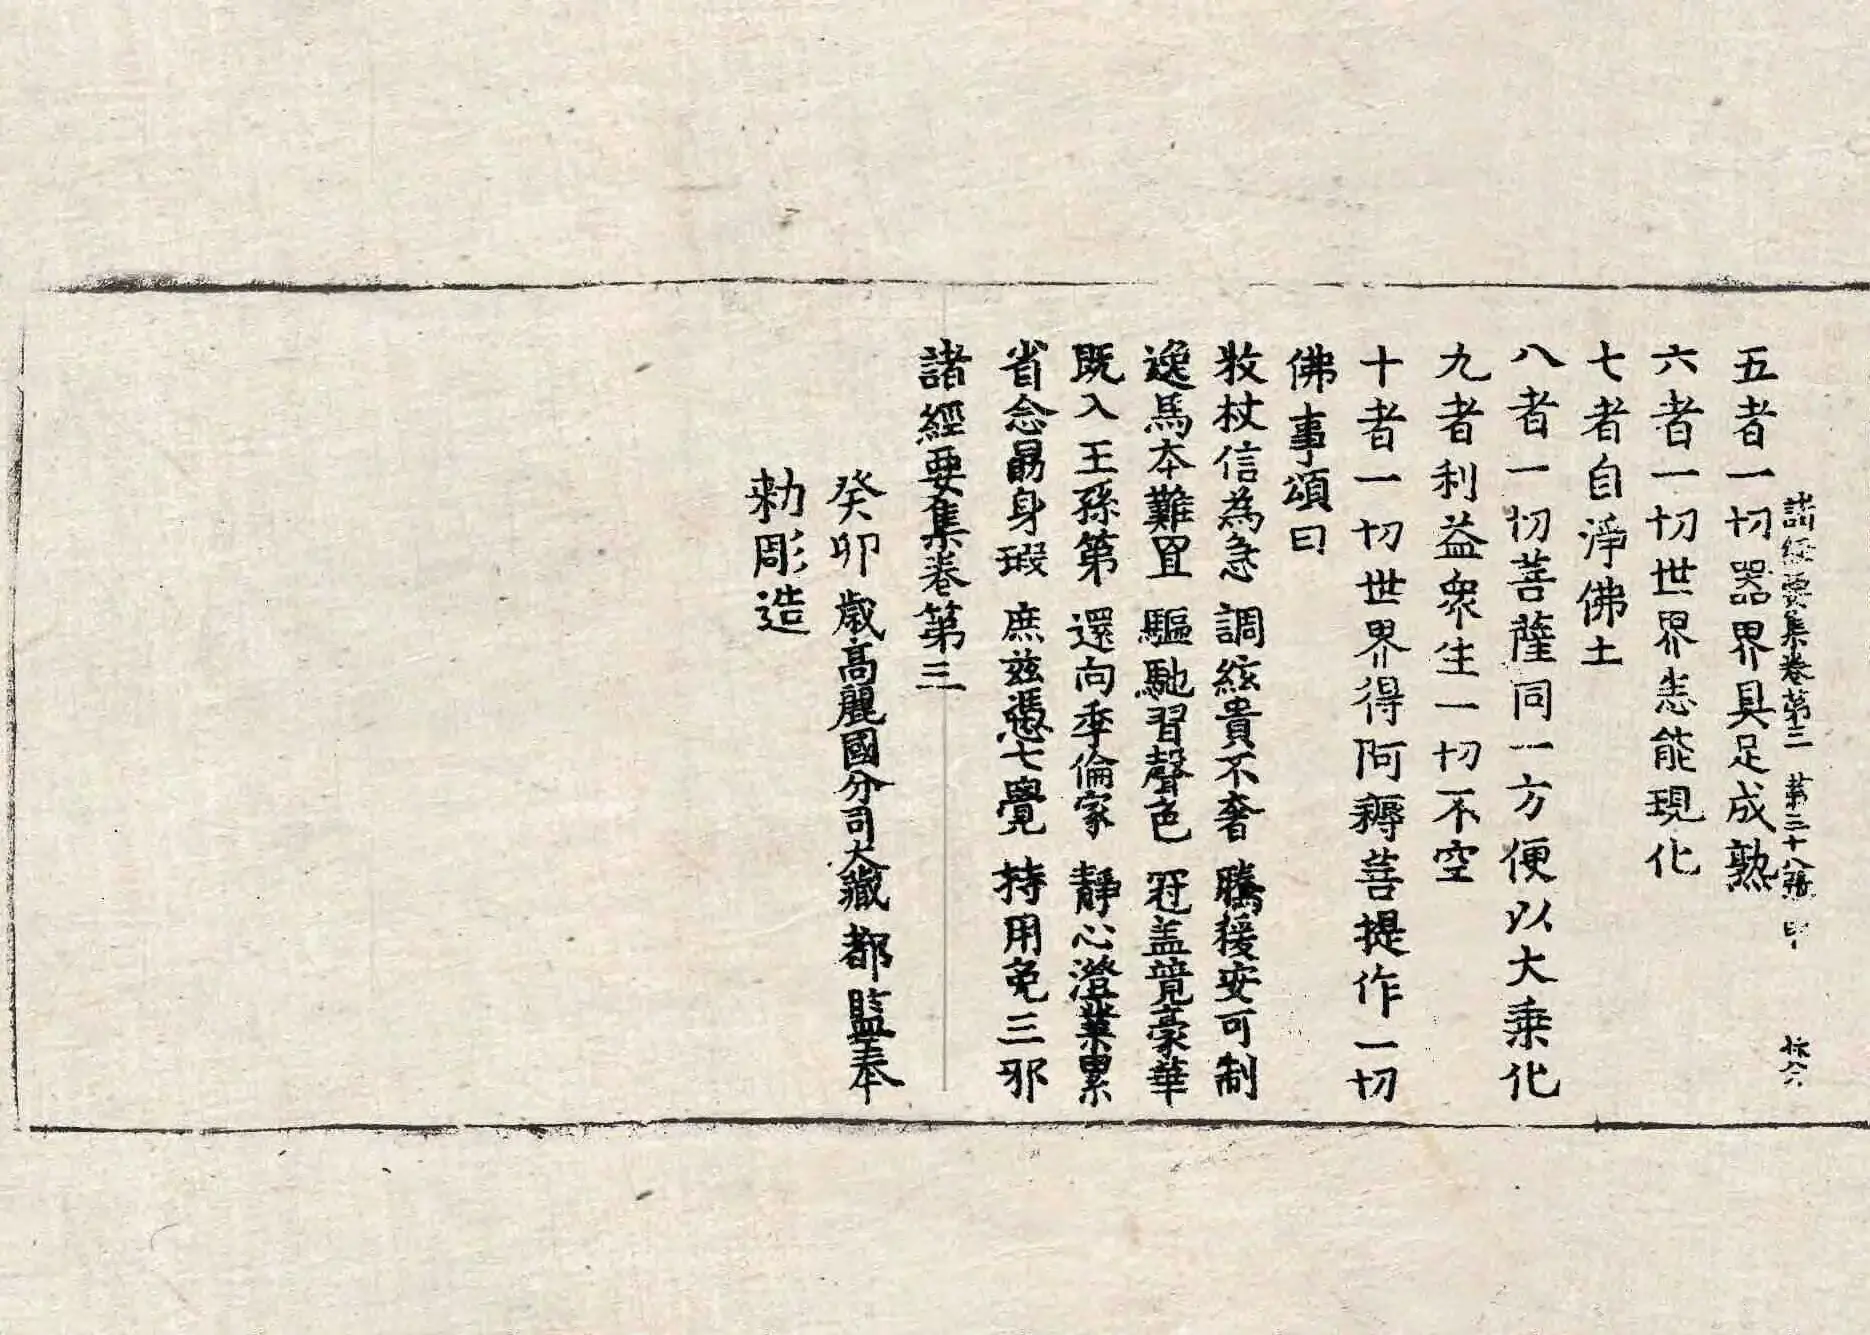 五者一切器界具足成熟
諸經要集卷第三 第三十八張 甲
六者一切世界恚能現化
七者自淨佛土
八者一切菩薩同一方便以大乘化
九者利益衆生一切不空
十者一切世界得阿耨菩提作一切
佛事頌曰
牧杖信為急 調絃貴不奢 騰猨安可制
逸馬本難罝 驅馳習聲色 冠盖競豪華
既入王孫第 還向季倫家 靜心澄業累
省念勗身瑕 庶兹憑七覺 持用免三邪
諸經要集卷第三
癸卯歲高麗國分司大藏都監奉
勑彫造